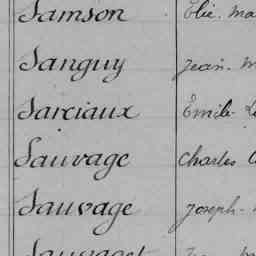 Samson Elie. Ma
Sanguy Jean. M
Sarciaux Emile. L
Sauvage Charles
Sauvage Joseph.
Sauvaget